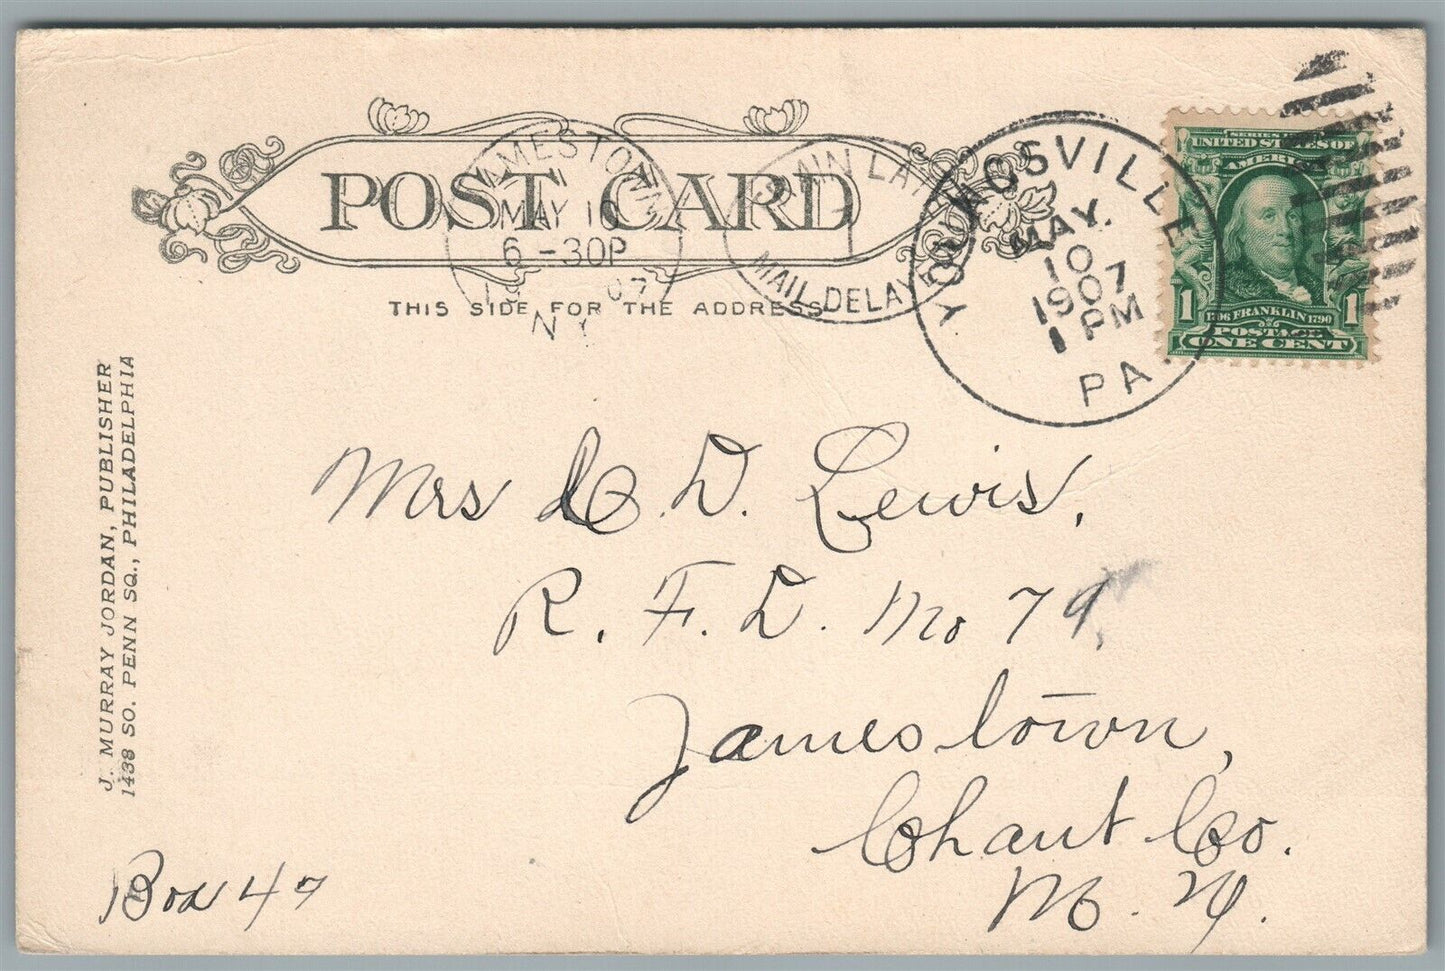 POST CARD
THIS SIDE FOR THE ADDRESS
JAMESTOWN
MAY 10
6-30P
1907
N.Y.
TRAIN LATE
MAIL DELAYED
YOUNGSVILLE
MAY.
10
1907
1 PM
PA.
SERIES 1902
UNITED STATES OF
AMERICA
1 1
1706 FRANKLIN 1790
POSTAGE
ONE CENT
Mrs C. D. Lewis,
R. F. D. No 79,
Jamestown,
Chaut Co.
N. Y.
Box 47
J. MURRAY JORDAN, PUBLISHER
1438 SO. PENN SQ., PHILADELPHIA